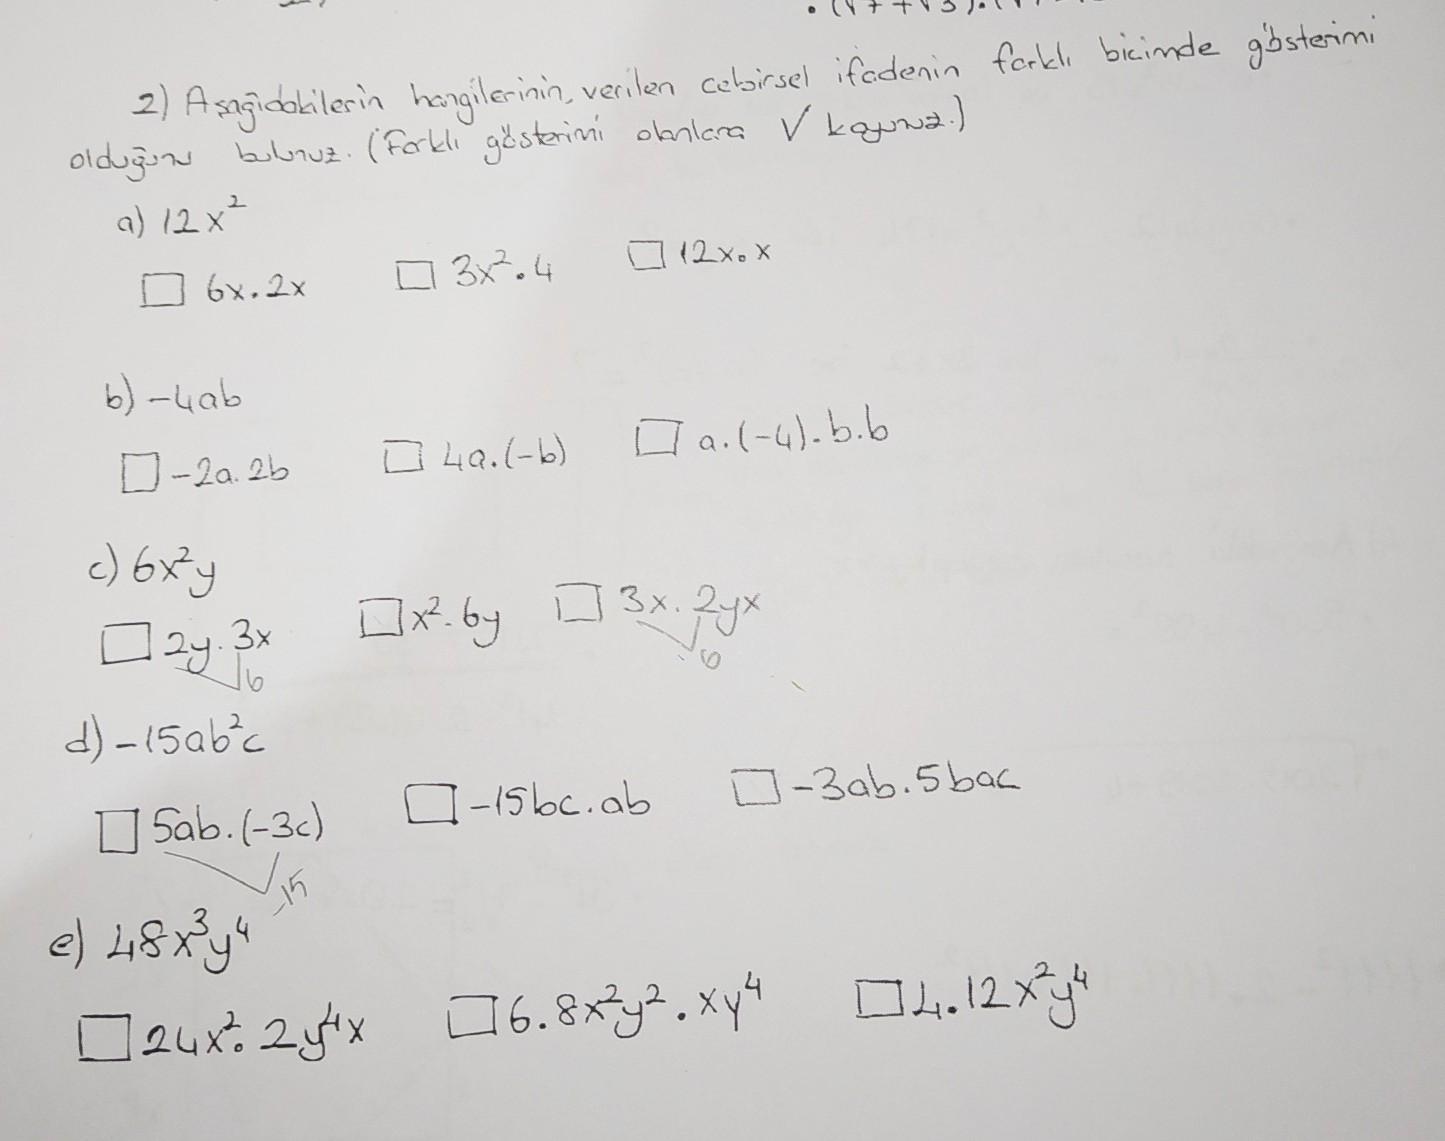 2) Aşağıdakilerin hangilerinin, verilen cebirsel ifadenin farklı biçimde gösterimi
olduğunu bulunuz. (Farklı gösterimi olanlara √ koyunuz.)
a) 12x²
□ 6x.2x □ 3x².4 □ 12x.x
b) -4ab
□ -2a.2b □ 4a.(-b) □ a.(-4).b.b
c) 6x²y
□ 2y.3x □ x².6y □ 3x.2yx
6 6
d) -15ab²c
□ 5ab.(-3c) □ -15bc.ab □ -3ab.5bac
-15
e) 48x³y⁴
□ 24x².2y⁴x □ 6.8x²y².xy⁴ □ 4.12x²y⁴